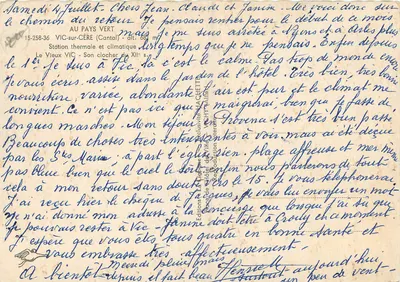 Samedi 4 Juillet. Chers Jean-Claude et Janine. Me voici donc sur
le chemin du retour. Je pensais rentrer pour le début de ce mois
AU PAYS VERT
15-258-36 VIC-sur-CÈRE (Cantal) - alt.
Station thermale et climatique
Le Vieux VIC - Son clocher XIIe
mais je me suis arrêtée à Lyons et à des plus
longtemps que je ne pensais. Enfin depuis
le 1er je suis à Vic, là c'est le calme. Pas trop de monde encore
Je vous écris assise dans le jardin de l'hôtel. Très bien, très bonne
nourriture, variée, abondante. L'air est pur et le climat me
convient. Ce n'est pas ici que je maigrirai, bien que je fasse de
longues marches. Mon séjour en Provence s'est très bien passé.
Beaucoup de choses très intéressantes à voir, mais ai été déçue
par les Stes Maries, à part l'église rien, plage affreuse et mer même
pas bleue bien que le ciel le soit. Enfin nous parlerons de tout
cela à mon retour sans doute vers le 15. Je vous téléphonerai
J'ai reçu hier le chèque de Jacques, je vais lui envoyer un mot
je n'ai donné mon adresse à la concierge que lorsque j'ai su que
je pouvais rester à Vic - Janine doit être à Crouy en ce moment.
J'espère que vous êtes tous quatre en bonne santé et
vous embrasse très affectueusement -
A bientôt
depuis il fait beau
surtout aujourd'hui
un peu de vent -